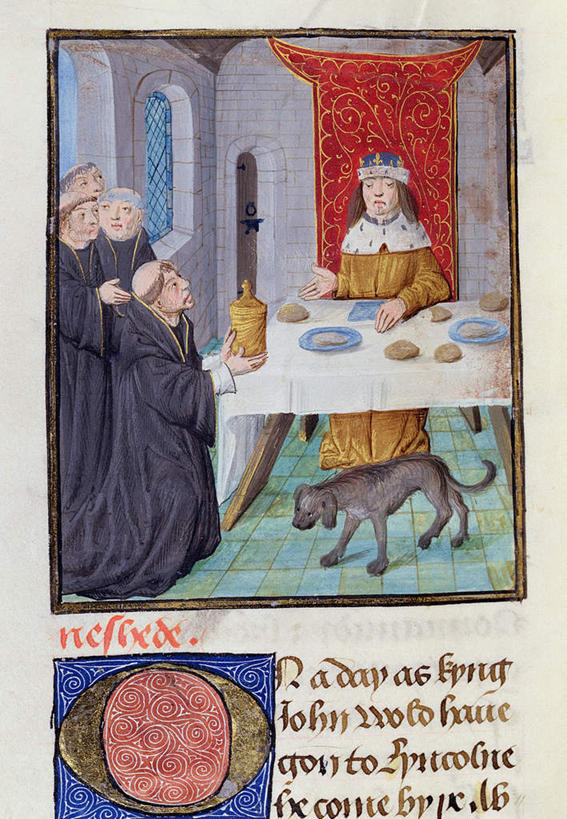 neshede.
ON a day as kyng
John wold haue
gon to Lyncolne
he come by þe Ab